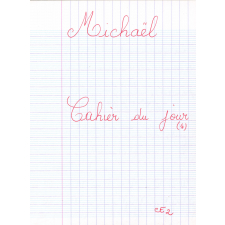 Michaël
Cahier du jour
(4)
CE2